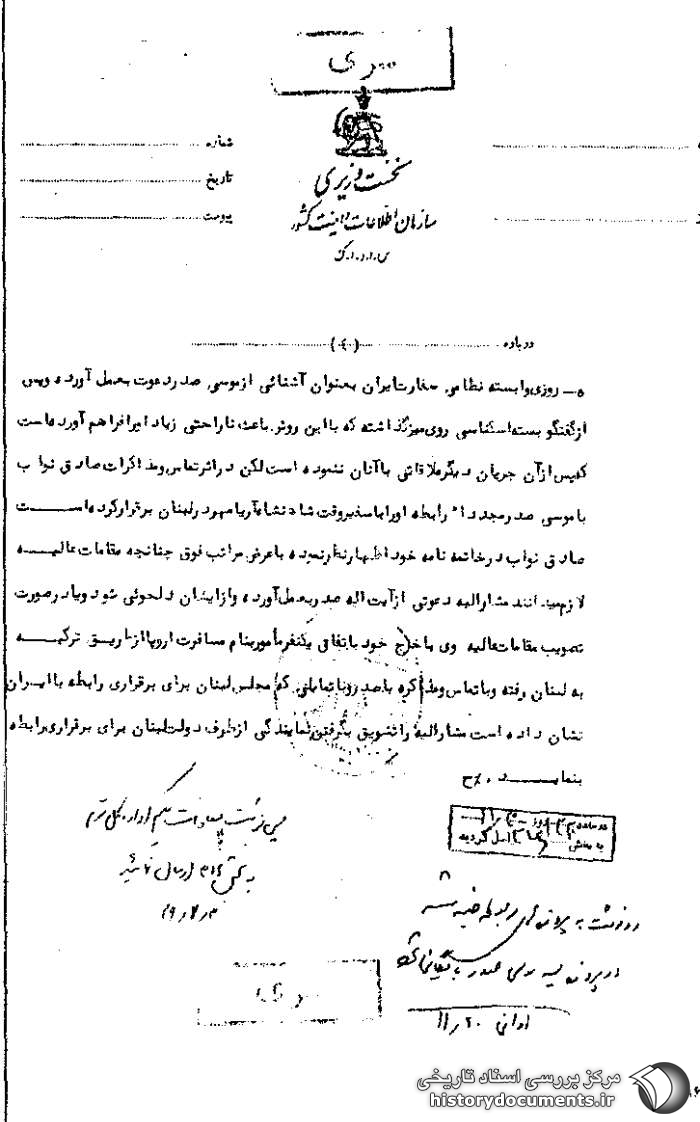 سری
شماره
تاریخ
پیوست
نخست وزیری
سازمان اطلاعات و امنیت کشور
س.ا.و.ا.ک
درباره (٤)
ه_ روزی وابسته نظامی سفارت ایران بعنوان آشنائی از موسی صدر دعوت بعمل آورده و پس
از گفتگو بسته اسکناسی روی میز گذاشته که با این روش باعث ناراحتی زیاد او را فراهم آورده است
که پس از آن جریان دیگر ملاقاتی با آنان ننموده است لکن در اثر تماس و مذاکرات صادق نواب
با موسی صدر مجددا رابطه او را با سفیر وقت شاهنشاه آریامهر در لبنان برقرار کرده است
صادق نواب در خاتمه نامه خود اظهار نظر نموده با عرض مراتب فوق چنانچه مقامات عالیه
لازم میدانند مشارالیه دعوتی از آیت اله صدر بعمل آورده و از ایشان دلجوئی شود و یا در صورت
تصویب مقامات عالیه وی با خرج خود باتفاق یکنفر مأمور بنام مسافرت اروپا از طریق ترکیه
به لبنان رفته و با تماس و مذاکره با صدر و با تمایلی که مجلس لبنان برای برقراری رابطه با ایران
نشان داده است مشارالیه را تشویق بگرفتن نمایندگی از طرف دولت لبنان برای برقراری رابطه
بنماید. ح
در ساعت روز
به بخش واصل گردید
اداره کل سوم
به بخش ٣١٦ ارسال نمائید
رونوشت به پرونده های مربوطه ضمیمه
در پرونده سید موسی صدر بایگانی شود
١١/٢٠
سری
مرکز بررسی اسناد تاریخی
historydocuments.ir